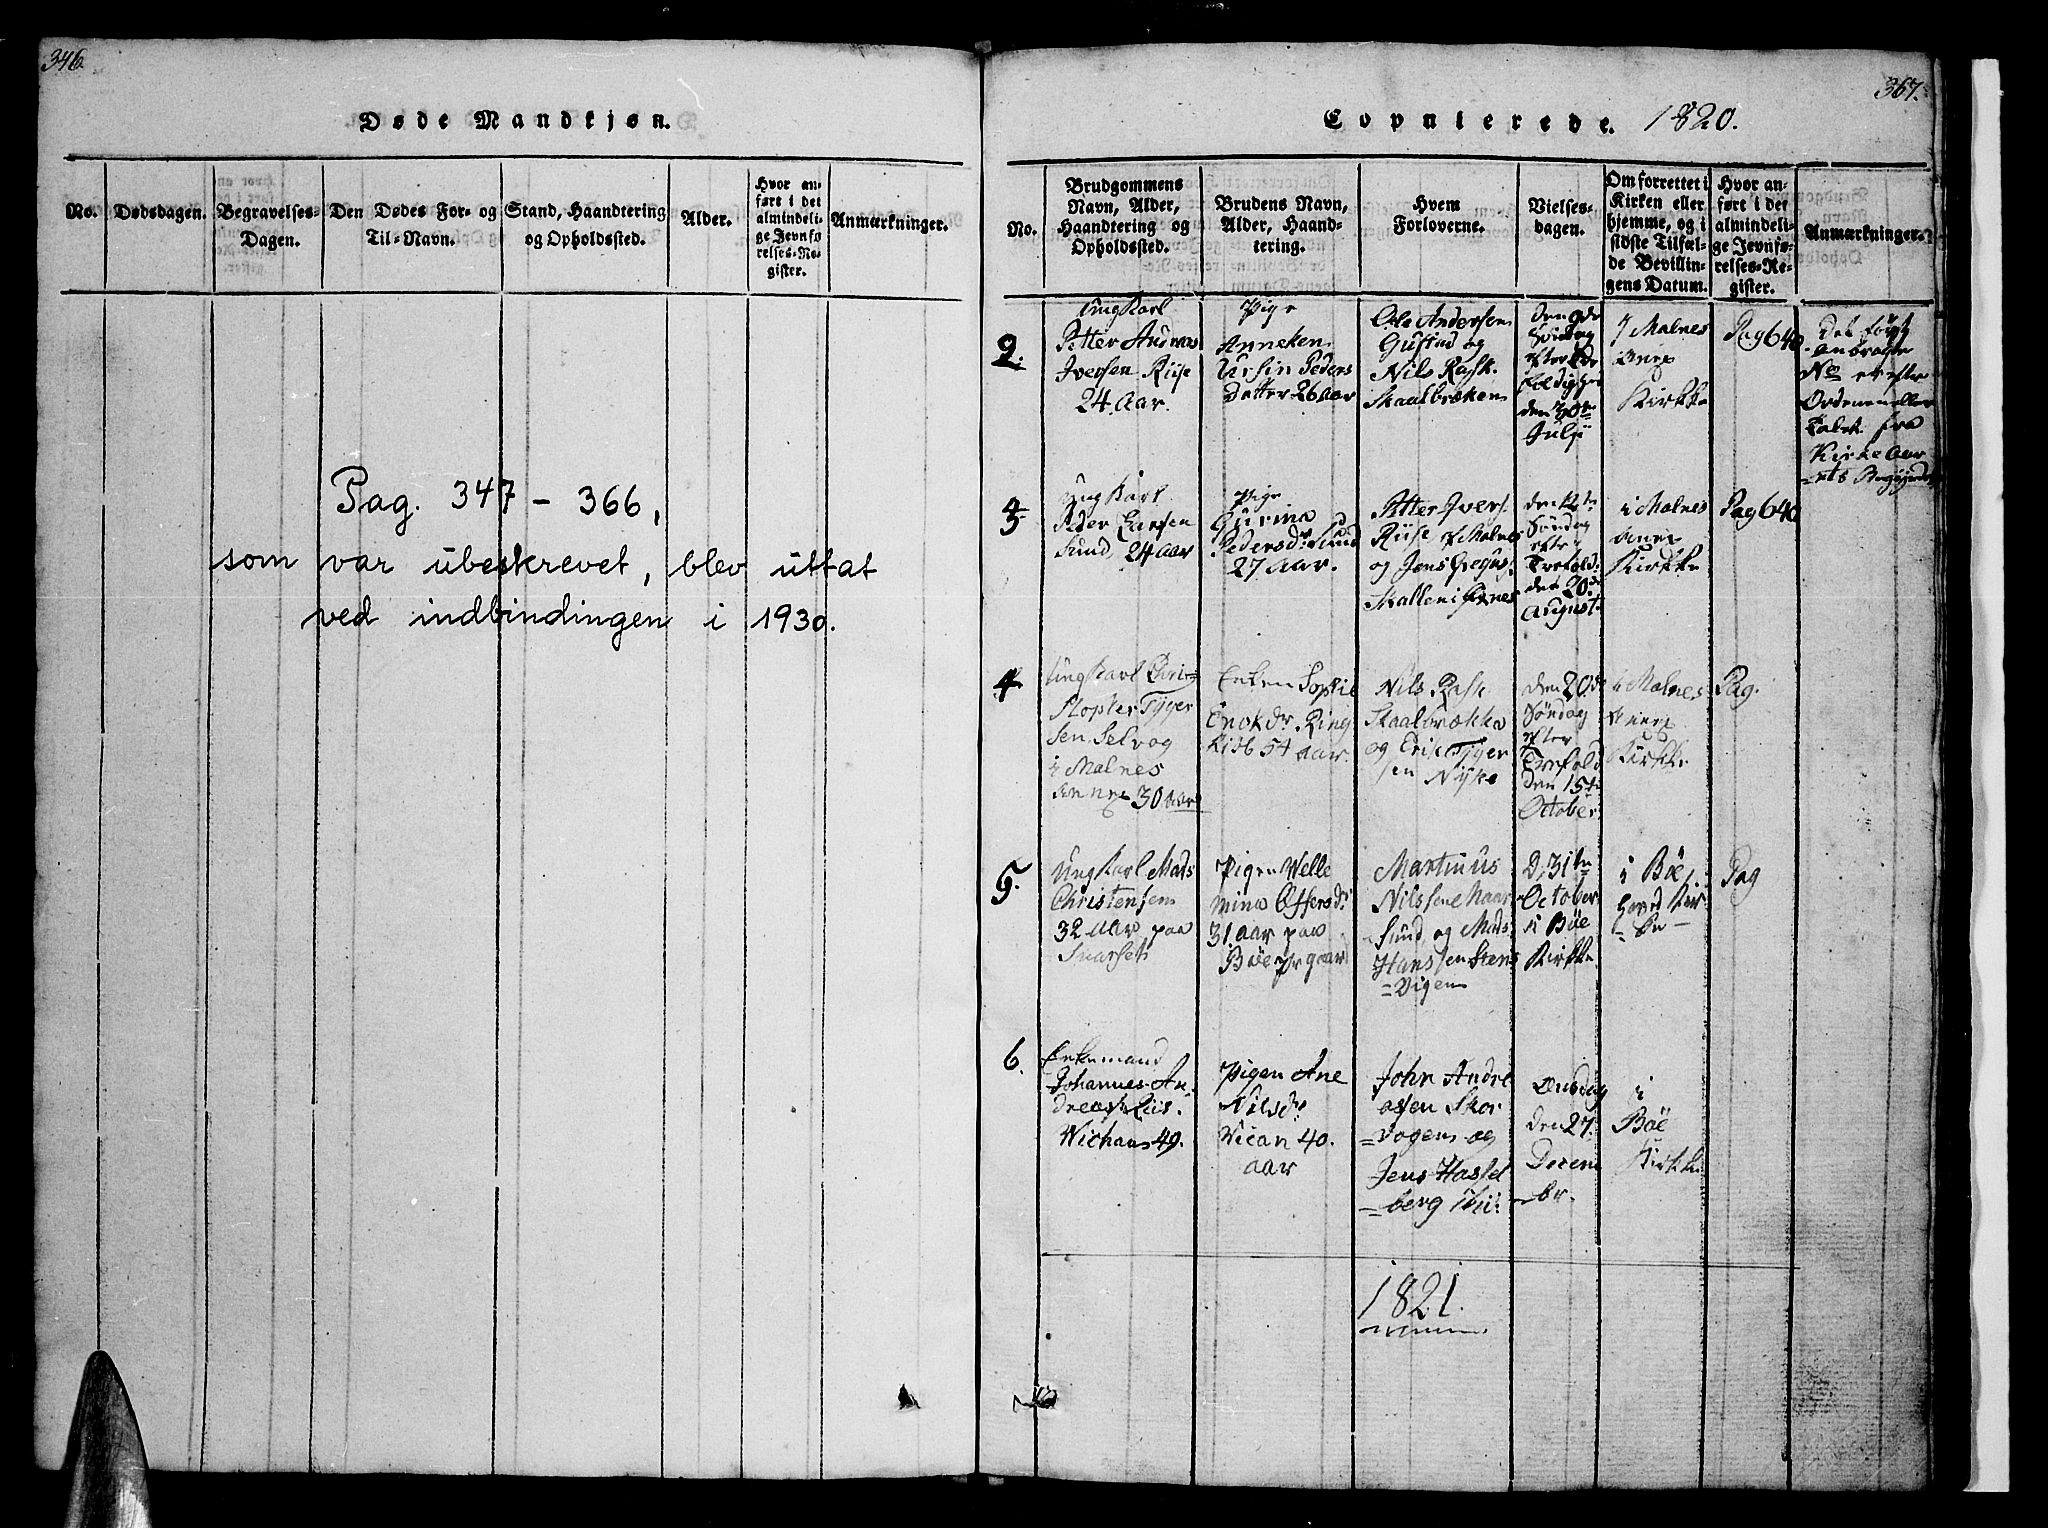 346.
Døde Mandkjøn.
No.
Dødsdagen.
Begravelses-
Dagen.
Den Dødes For- og
Til-Navn.
Stand, Haandtering
og Opholdssted.
Alder.
Hvor an-
ført i det
almindeli-
ge Jevnfø
relses-Re-
gister.
Anmærkninger.
Pag. 347 - 366,
som var ubeskrevet, blev uttat
ved indbindingen i 1930.
367.
Copulerede. 1820.
No.
Brudgommens
Navn, Alder,
Haandtering og
Opholdssted.
Brudens Navn,
Alder, Haand-
tering.
Hvem
Forloverne.
Vielses-
dagen.
Om forrettet i
Kirken eller
hjemme, og i
sidste Tilfæl-
de Bevillin-
gens Datum.
Hvor an-
ført i det
almindeli-
ge Jevnfø-
relses-Re-
gister.
Anmærkninger.
2.
Ung Karl
Petter Andreas
Iversen Riise
24 Aar.
Pige
Anneken
Ursin Peders
Datter 26 Aar
Ole Andersen
Gustad og
Nils Rask
Skaalbrækken
den 9de
Søndag
efter
den 30te
Julii
i Malnes
Anex
Kirkke
Pag 640
Det først
anbragte
No er efter
Ordenen eller
Talet fra
Kirke Aar
=ets
3
Ung Karl
Peder Larsen
Sund, 24 Aar
Pige
Gurina
Pedersdr Sund
27 Aar.
Petter Ivers.
Riise i Malnes
og Jens
den 12te
Søndag
efter
Trefold:
den 20de
August.
i Malnes
Anex
Kirkke
Pag 640
4
Ung Karl Chri-
stopher Tyger
sen Selvog
i Malnes
Annex 30 Aar
Enken Sophie
Enok dr Ring
54 Aar.
Nils Rask
Skaalbrækka
og Erik Tyger
sen Nyke
den 20de
Søndag
efter
Trefold
den 15te
October
i Malnes
Anex
Kirkke
Pag.
5.
Ung Karl Mads
Christensen
32 Aar paa
Snarset
Pigen Welle
mina Offersdr
31. Aar paa
Bøe
Martinus
Nilssen
sund og Mads
Hanssen Stens
=Vigen
D. 31te
October
i Bøe
Kirkke
i Bøe
Hoved Kir
ke
Pag
6.
Enkemand
Johannes An
dreas
49.
Pigen Ane
Nilsdr
40.
aar
John Andre
assen Skor
=vogen og
Jens Hassel
=berg
Onsdag
den 27.
Decem
=br.
i
Bøe
Kirkke
1821.